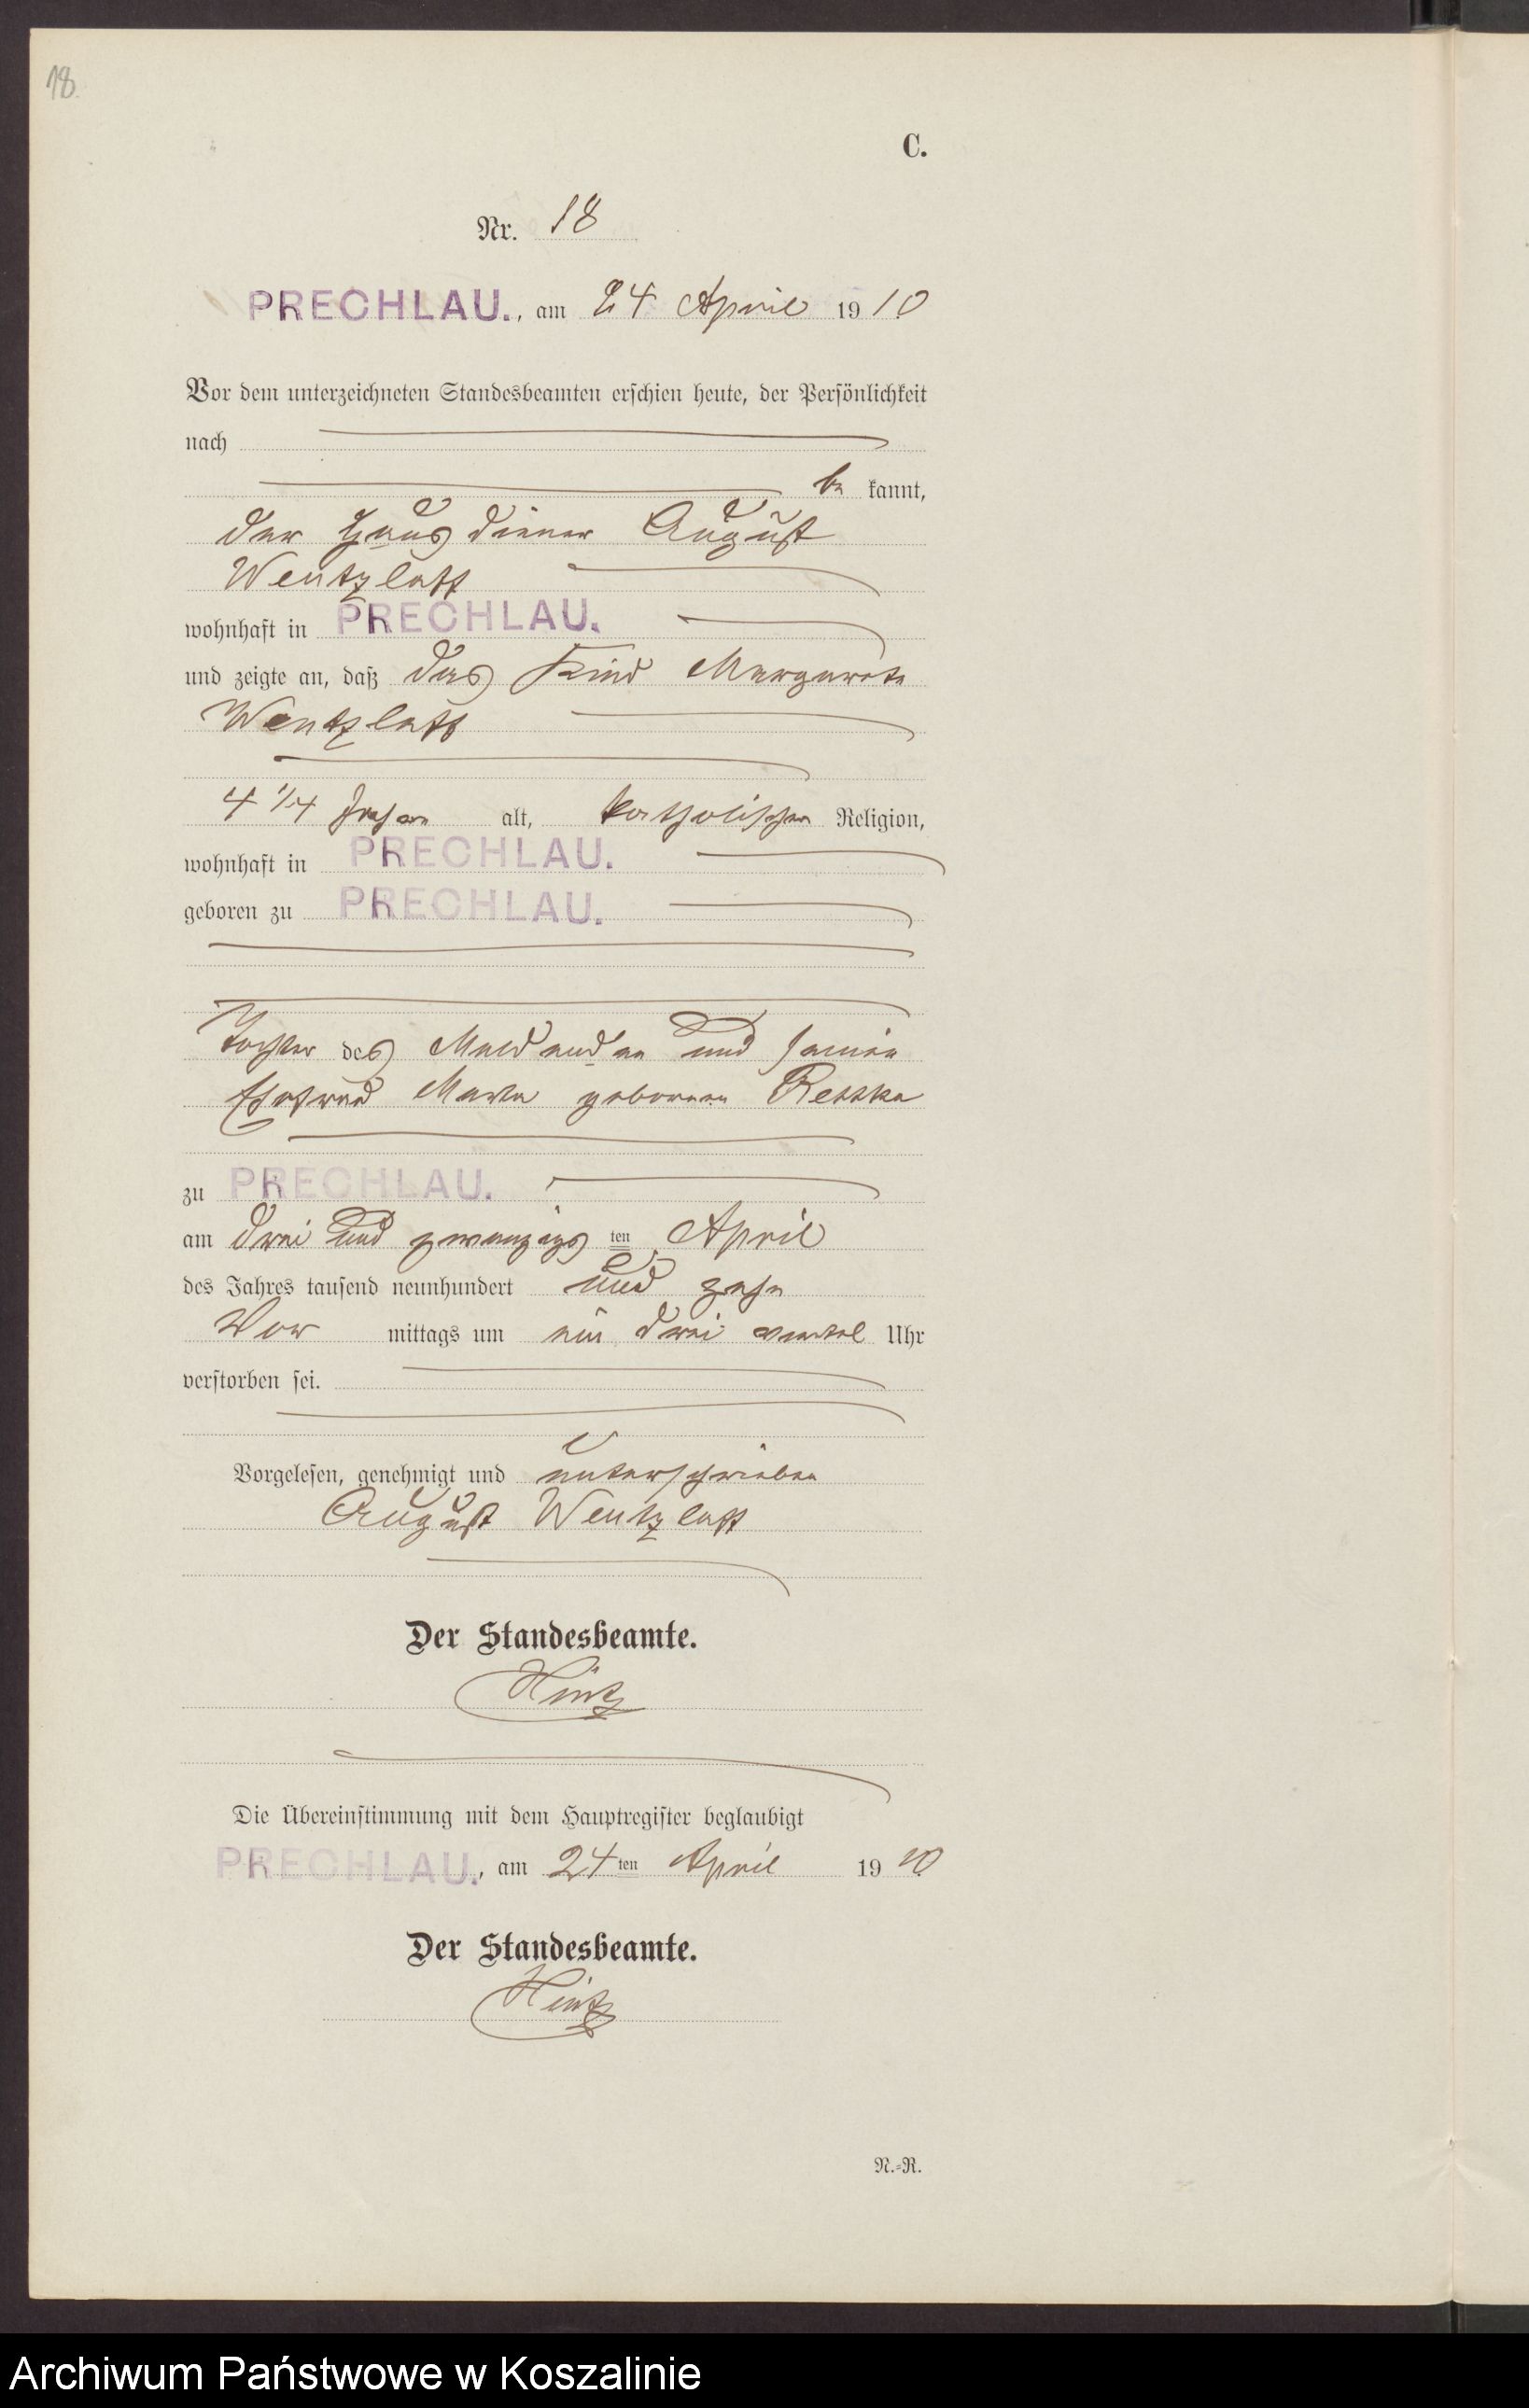 18
C.
Nr. 18
PRECHLAU., am 24 April 1910
Vor dem unterzeichneten Standesbeamten erschien heute, der Persönlichkeit
nach
be kannt,
der Hausdiener August
Wentzlaff
wohnhaft in PRECHLAU.
und zeigte an, daß das Kind Margarete
Wentzlaff
4 1/4 Jahre alt, katholischer Religion,
wohnhaft in PRECHLAU.
geboren zu PRECHLAU.
Tochter des Meldenden und seiner
Ehefrau Marta geborenen
zu PRECHLAU.
am drei und zwanzigsten April
des Jahres tausend neunhundert und zehn
Vor mittags um ein drei viertel Uhr
verstorben sei.
Vorgelesen, genehmigt und unterschrieben
August Wentzlaff
Der Standesbeamte.
Hintz
Die Übereinstimmung mit dem Hauptregister beglaubigt
PRECHLAU., am 24ten April 1910
Der Standesbeamte.
Hintz
N.-R.
Archiwum Państwowe w Koszalinie